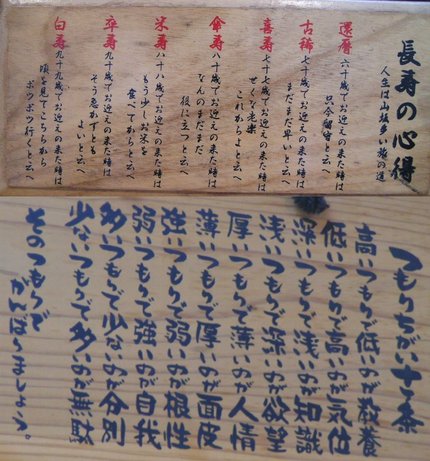 長寿の心得
人生は山坂多い旅の道
還暦 六十歳でお迎えの来た時は
只今留守と云へ
古稀 七十歳でお迎えの来た時は
まだまだ早いと云へ
喜寿 七十七歳でお迎えの来た時は
せくな老楽
これからよと云へ
傘寿 八十歳でお迎えの来た時は
なんのまだまだ
役に立つと云へ
米寿 八十八歳でお迎えの来た時は
もう少しお米を
食べてからと云へ
卒寿 九十歳でお迎えの来た時は
そう急がずとも
よいと云へ
白寿 九十九歳でお迎えの来た時は
頃を見てこちらから
ボツボツ行くと云へ
つもりちがい十条
高いつもりで低いのが教養
低いつもりで高いのが気位
深いつもりで浅いのが知識
浅いつもりで深いのが欲望
厚いつもりで薄いのが人情
薄いつもりで厚いのが面皮
強いつもりで弱いのが根性
弱いつもりで強いのが自我
多いつもりで少ないのが分別
少ないつもりで多いのが無駄
そのつもりで
がんばりましょう。